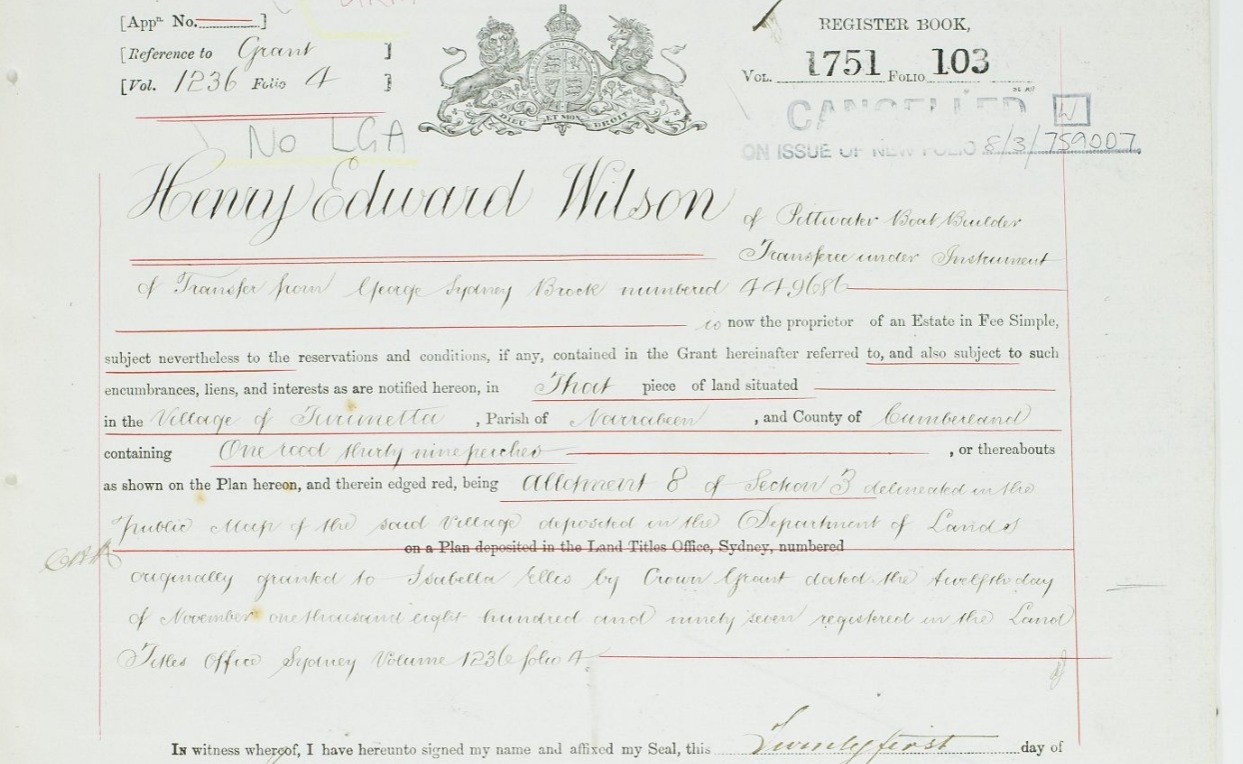 [Appⁿ No. ]
REGISTER BOOK,
[Reference to Grant ]
[Vol. 1236 Folio 4 ]
Vol. 1751 Folio 103
DIEU ET MON DROIT
CANCELLED
W
No LGA
ON ISSUE OF NEW FOLIO 8/3/759007
Henry Edward Wilson of Pittwater Boat Builder
Transferee under Instrument
of Transfer from George Sydney Brook numbered 449686
is now the proprietor of an Estate in Fee Simple,
subject nevertheless to the reservations and conditions, if any, contained in the Grant hereinafter referred to, and also subject to such
encumbrances, liens, and interests as are notified hereon, in That piece of land situated
in the Village of Turimetta , Parish of Narrabeen , and County of Cumberland
containing One rood thirty nine perches , or thereabouts
as shown on the Plan hereon, and therein edged red, being Allotment 8 of Section 3 delineated in the
Public Map of the said Village deposited in the Department of Lands
on a Plan deposited in the Land Titles Office, Sydney, numbered
originally granted to Isabella Ellis by Crown Grant dated the twelfth day
of November one thousand eight hundred and ninety seven registered in the Land
Titles Office Sydney Volume 1236 folio 4.
In witness whereof, I have hereunto signed my name and affixed my Seal, this Twenty first day of